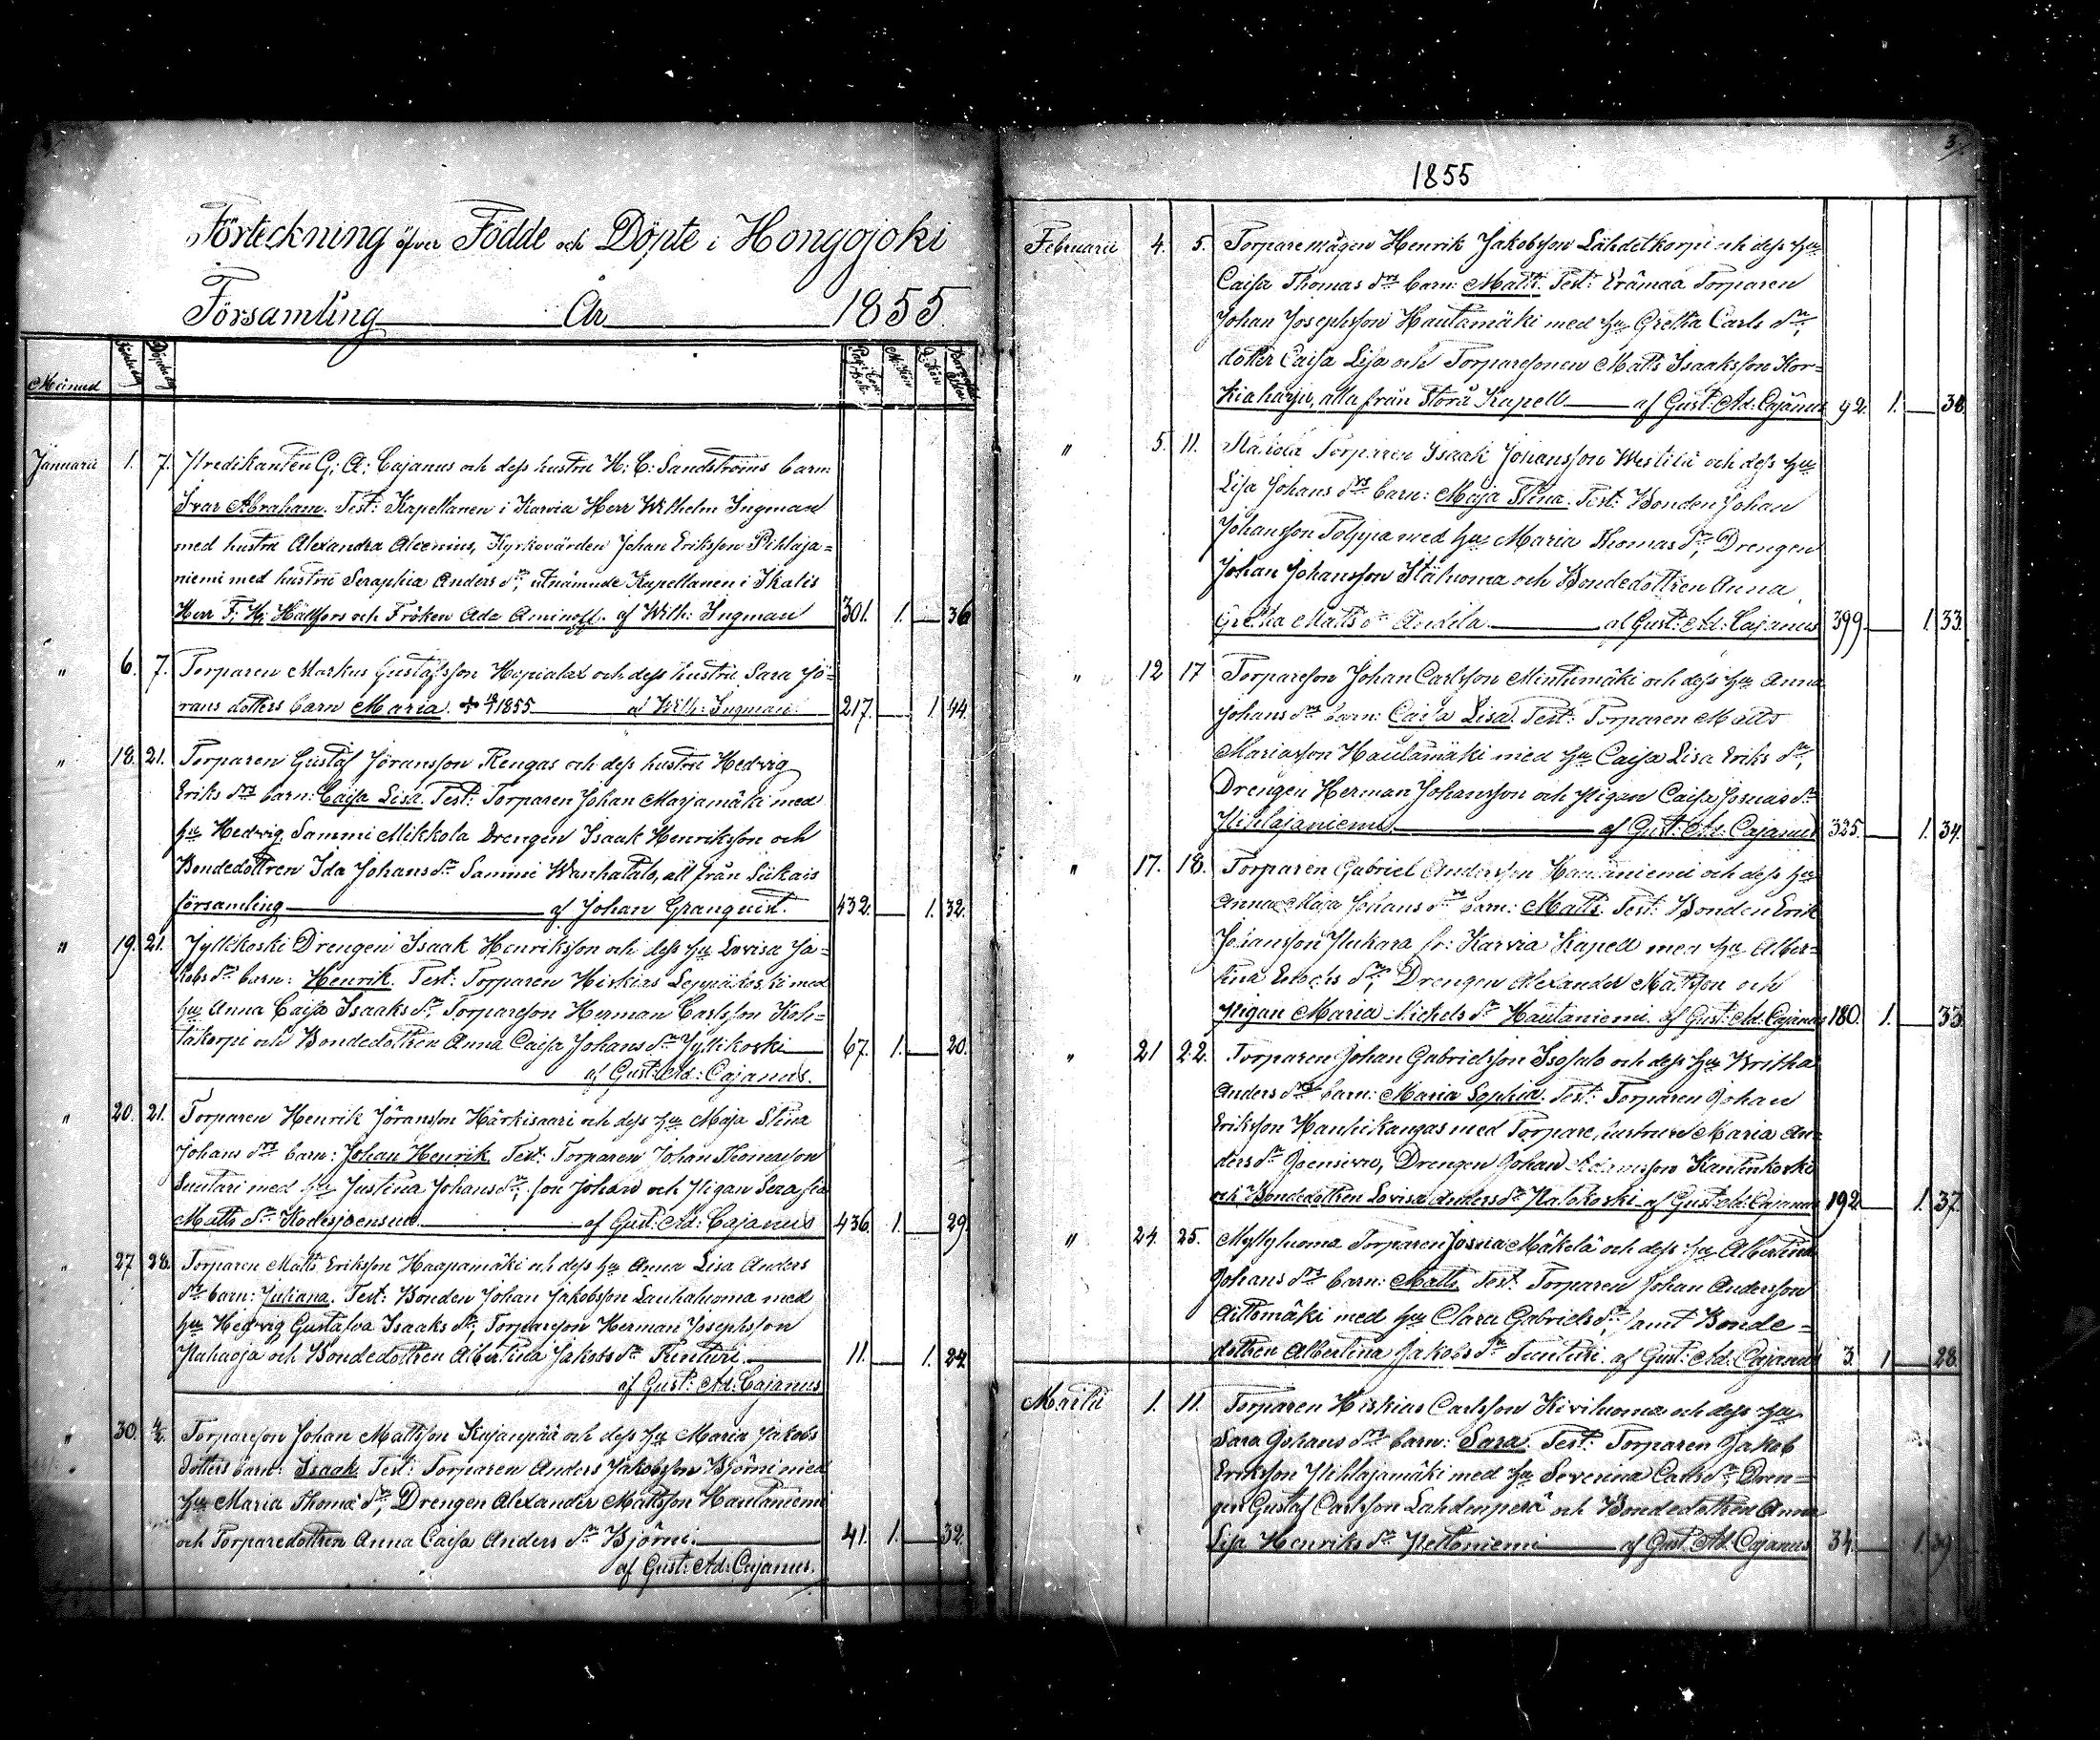 Förteckning öfver Födde och Döpte i Hongojoki
Församling År 1855.
Månad
Januarii 1. 7. Predikanten G: A: Cajanus och dess hustru H: C: Sandströms barn:
Ivar Abraham. Test: Kapellanen i Karvia Herr Wilhelm Ingman
med hustru Alexandra Alcenius, Kyrkovärden Johan Eriksson Pihlaja=
niemi med hustru Seraphia Anders dr, utnämnde Kapellanen i Ikalis
Herr F. H. Hällfors och Fröken Ada Aminoff. af Wilh: Ingman 301. 1. — 36
" 6. 7. Torparen Markus Gustafsson Hepialax och dess hustru Sara Jö=
rans dotters barn Maria. 1855 af Wilh: Ingman 217. — 1 44.
" 18. 21. Torparen Gustaf Jöransson Rengas och dess hustru Hedvig
Eriks drs barn: Caisa Lisa. Test: Torparen Johan Marjamäki med
hu Hedvig, Sammi Mikkola Drengen Isaak Henriksson och
Bondedottren Ida Johans dr Sammi Wanhatalo, all från Siikais
församling af Johan Granquist. 432. — 1. 32.
" 19. 21. Jyllikoski Drengen Isaak Henriksson och dess hu Lovisa Ja=
kobs drs barn: Henrik. Test: Torparen Hiskias Leppäkoski med
hu Anna Caisa Isaaks dr, Torpareson Herman Carlsson Koh=
takorpi och Bondedottren Anna Caisa Johans dr Jyllikoski 67. 1. — 20.
af Gust: Ad: Cajanus.
" 20 21. Torparen Henrik Jöransson Härkisaari och dess hu Maja Stina
Johans drs barn: Johan Henrik. Test: Torparen Johan Thomasson
Suutari med hu Justina Johans dr, son Johan och Pigan Serafia
Matts dr Kodesjoensuu af Gust: Ad: Cajanus 436. 1. — 29.
" 27 28. Torparen Matts Eriksson Haapamäki och dess hu Anna Lisa Anders
drs barn: Juliana. Test: Bonden Johan Jakobsson Lauhaluoma med
hu Hedvig Gustafva Isaaks dr, Torpareson Herman Josephsson
Pahaoja och Bondedottren Albertina Jakobs dr Tunturi. 11. — 1. 24.
af Gust: Ad: Cajanus
" 30. 4/2. Torpareson Johan Mattsson Kujanpää och dess hu Maria Jakobs
dotters barn: Isaak. Test: Torparen Anders Jakobsson Björni med
hu Maria Thoma dr, Drengen Alexander Mattsson Hautaniemi
och Torparedottren Anna Caisa Anders dr Björni. 41. 1. — 32.
af Gust: Ad: Cajanus.
3
1855
Februarii 4. 5. Torparemågen Henrik Jakobsson Lähdetkorpi och dess hu
Caisa Thomas drs barn: Matts. Test: Erämaa Torparen
Johan Josephsson Hautamäki med hu Gretha Carls dr,
dotter Caisa Lisa och Torparesonen Matts Isaaksson Kor=
kiaharju, alla från Storå Kapell af Gust: Ad: Cajanus 92. 1. —
" 5. 11. Torparen Isaak Johansson Westilä och dess hu
Lisa Johans drs barn: Maja Stina. Test: Bonden Johan
Johansson Tolppa med hu Maria Thomas dr, Drengen
Johan Johansson och Bondedottren Anna
Gretha Matts dr Andila. af Gust: Ad: Cajanus 399. — 1. 33.
" 12 17 Torpareson Johan Carlsson Mintumäki och dess hu Anna
Johans drs barn: Caisa Lisa. Test: Torparen Matts
Mariasson Hautamäki med hu Caisa Lisa Eriks dr,
Drengen Herman Johansson och Pigan Caisa Josuas dr
Pihlajaniemi af Gust: Ad: Cajanus 325. — 1. 34.
" 17. 18. Torparen Gabriel Andersson Hautaniemi och dess hu
Anna Maja Johans drs barn: Matts. Test: Bonden Erik
Johansson Pukara fr: Karvia Kapell med hu Alber=
tina Enochs dr, Drengen Alexander Mattsson och
Pigan Maria Michels dr Hautaniemi. af Gust: Ad: Cajanus 180. 1. — 33.
" 21 22. Torparen Johan Gabrielsson Isosalo och dess hu Britha
Anders drs barn: Maria Sophia. Test: Torparen Johan
Eriksson Hanhikangas med Torpare hustrun Maria An=
ders dr Joensivu, Drengen Johan Adamsson Kantinkoski
och Bondedottren Lovisa Anders dr Palokoski af Gust: Ad: Cajanus 192 — 1. 37.
" 24. 25. Myllyluoma Torparen Josua Mäkelä och dess hu Albertina
Johans drs barn: Matts. Test: Torparen Johan Andersson
Aittomäki med hu Clara Gabriels dr, samt Bonde=
dottren Albertina Jakobs dr Tunturi. af Gust: Ad: Cajanus 3. 1 — 28.
Martii 1. 11. Torparen Hiskias Carlsson Kiviluoma och dess hu
Sara Johans drs barn: Sara. Test: Torparen Jakob
Eriksson Pihlajamäki med hu Severina Carls dr, Dren=
gen Gustaf Carlsson Lahdenperä och Bondedottren Anna
Lisa Henriks dr Peltoniemi af Gust: Ad: Cajanus 34. — 1 39